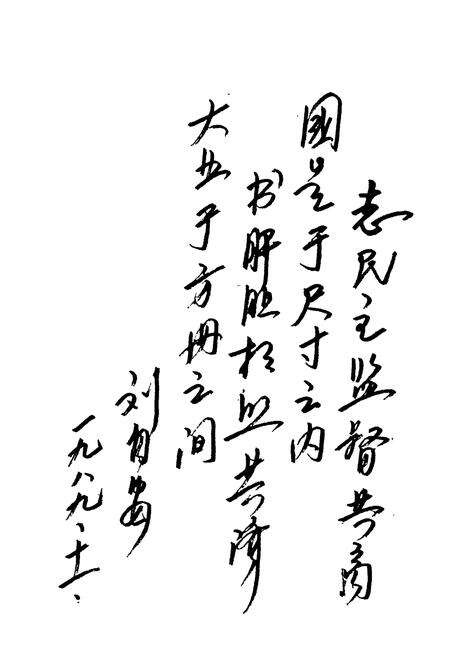 志民主监督共商
國是于尺寸之内
书肝胆相照共济
大业于方册之间
刘自安
一九八九、十一、